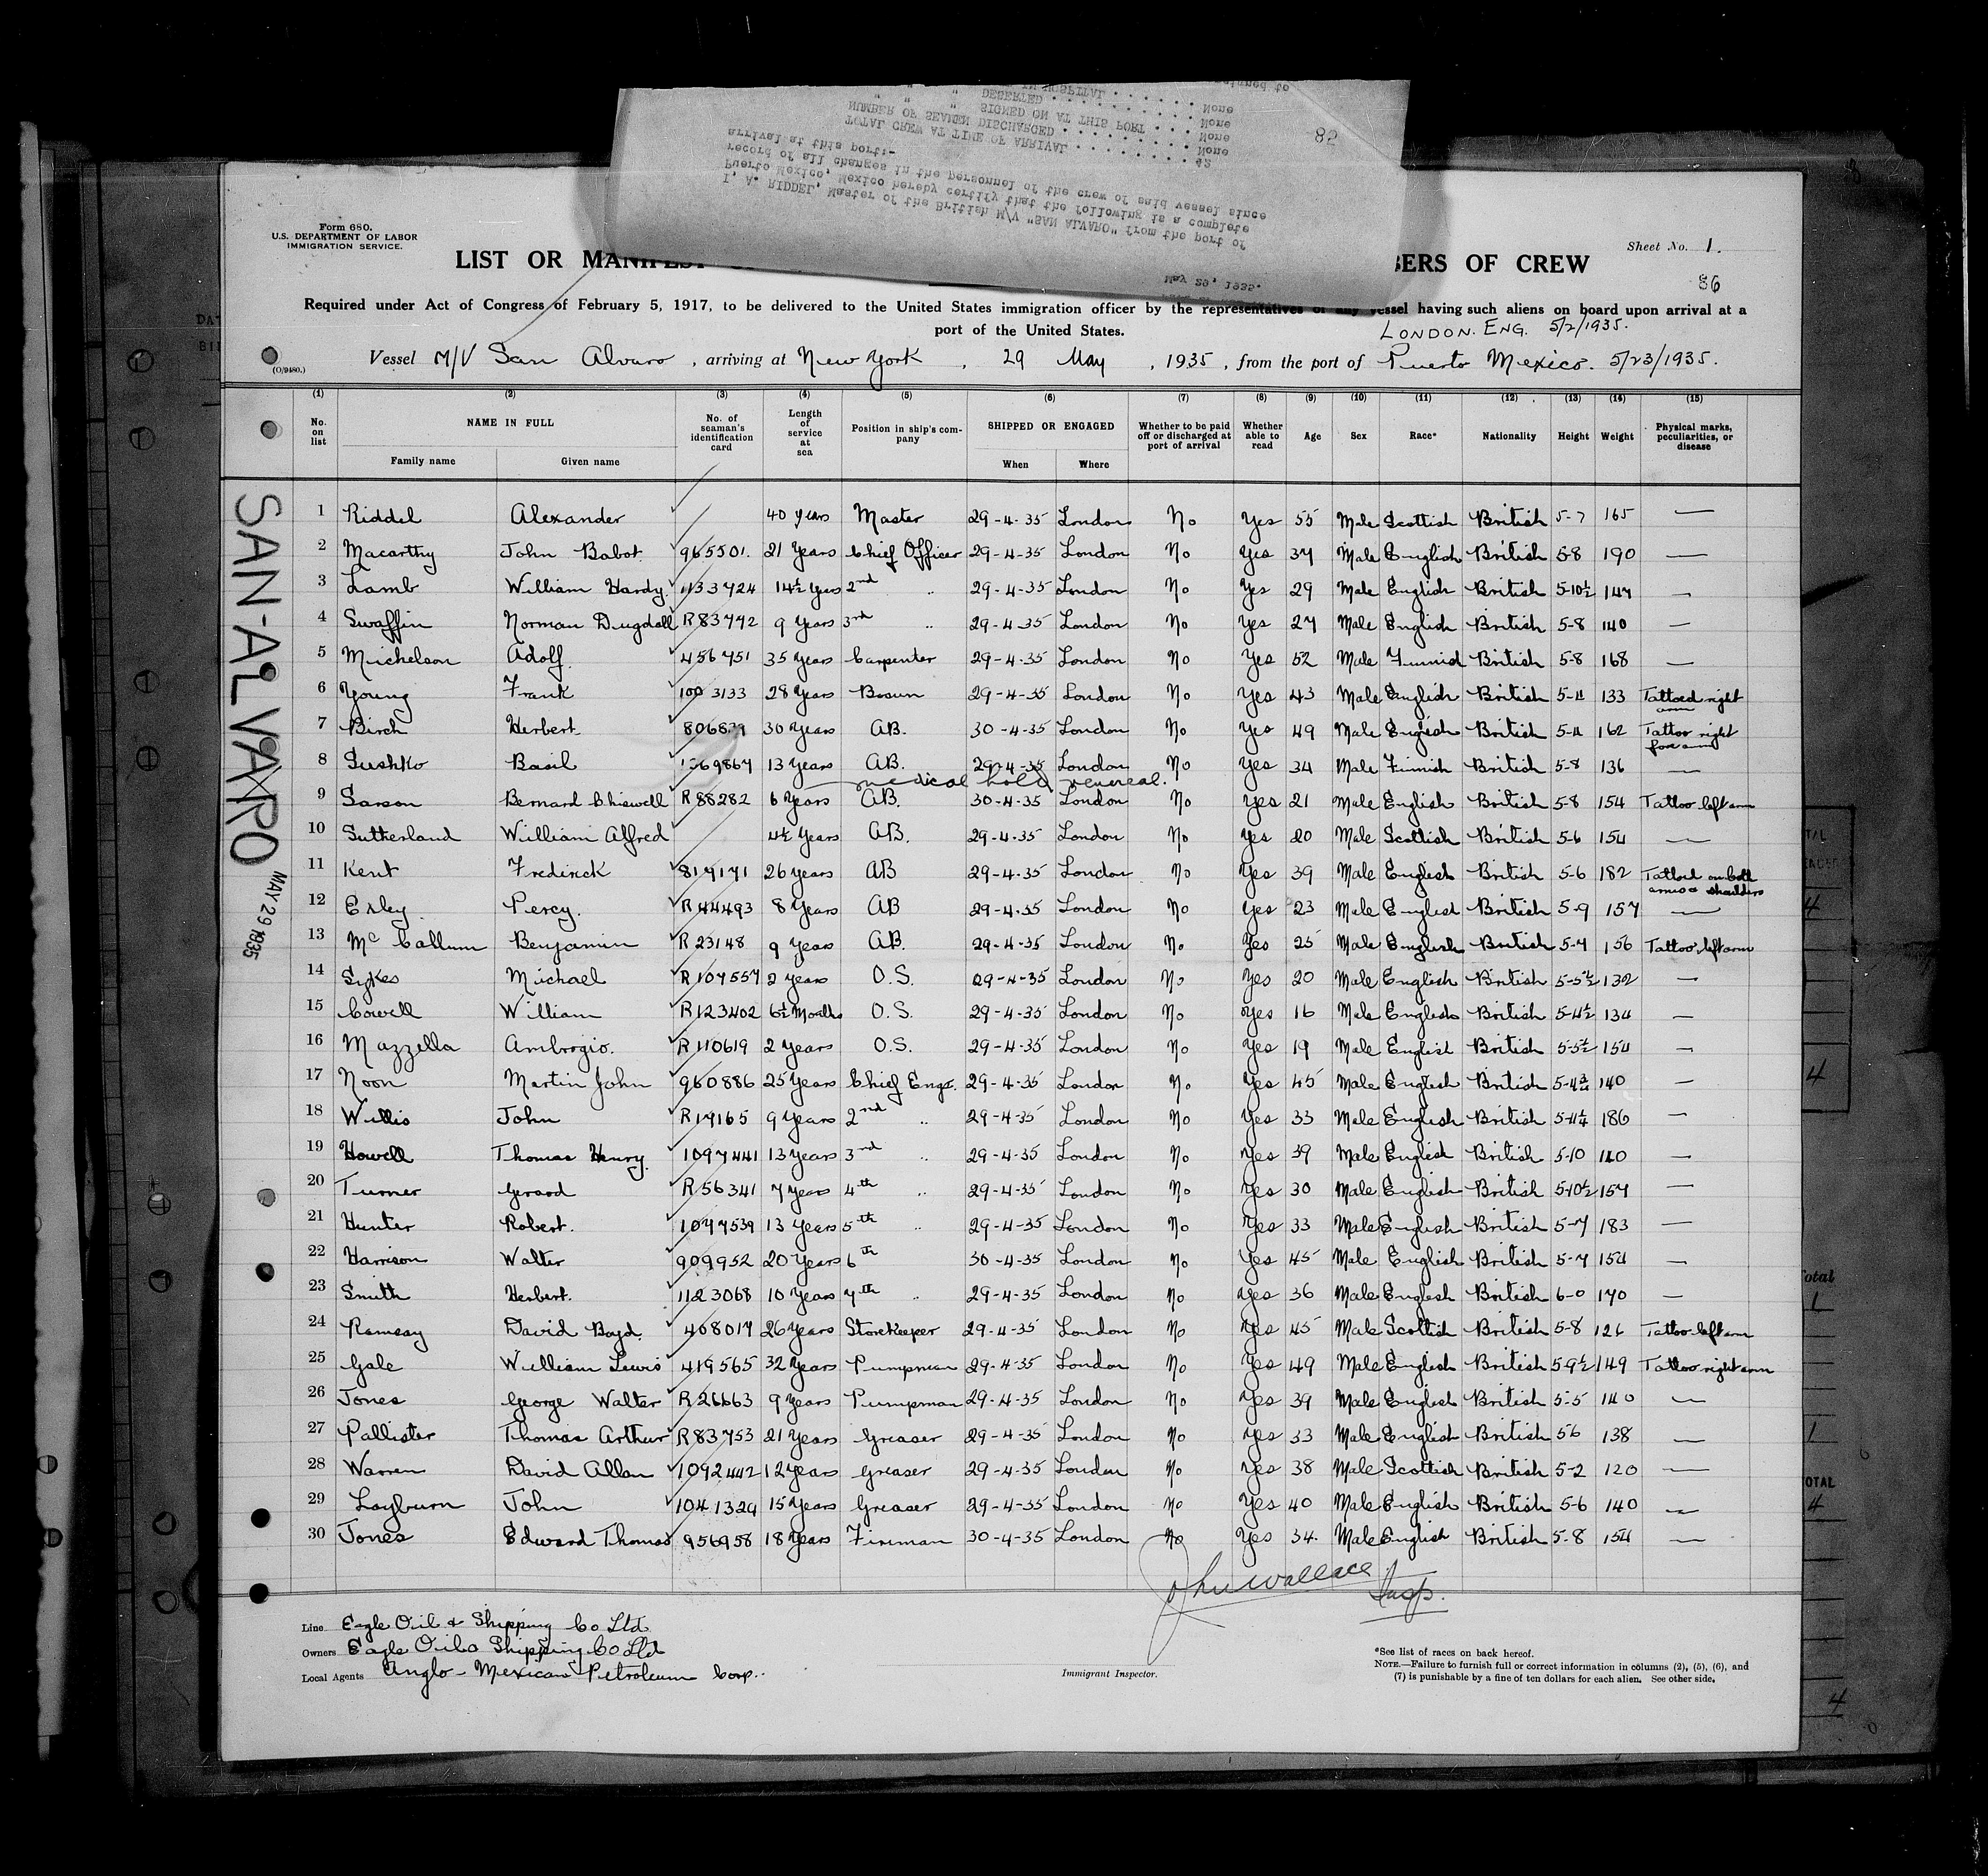 May 29, 1935.
I, A. RIDDEL, Master of the British M/V "SAN ALVARO" from the port of
Puerto Mexico, Mexico hereby certify that the following is a complete
record of all changes in the personnel of the crew of said vessel since
arrival at this port:-
TOTAL CREW AT TIME OF ARRIVAL . . . . . . . . 42
NUMBER OF SEAMEN DISCHARGED . . . . . . . . None
" " " SIGNED ON AT THIS PORT . . . None
" " " DESERTED . . . . . . . . None
IN HOSPITAL . . . . . . None
82
Form 680.
U.S. DEPARTMENT OF LABOR
IMMIGRATION SERVICE.
Sheet No. 1.
86
LIST OR MANIFEST BERS OF CREW
Required under Act of Congress of February 5, 1917, to be delivered to the United States immigration officer by the representatives of any vessel having such aliens on board upon arrival at a
port of the United States.
LONDON. ENG. 5/2/1935.
Vessel M/V San Alvaro, arriving at New York, 29 May, 1935, from the port of Puerto Mexico. 5/23/1935.
(O/9480.)
(1) (2) (3) (4) (5) (6) (7) (8) (9) (10) (11) (12) (13) (14) (15)
No. on list NAME IN FULL Family name Given name No. of seaman's identification card Length of service at sea Position in ship's company SHIPPED OR ENGAGED When Where Whether to be paid off or discharged at port of arrival Whether able to read Age Sex Race* Nationality Height Weight Physical marks, peculiarities, or disease
SAN-ALVARO
MAY 29 1935
1 Riddel Alexander 40 years Master 29-4-35 London No Yes 55 Male Scottish British 5-7 165 —
2 Macarthy John Babot 965501. 21 Years Chief Officer 29-4-35 London No Yes 37 Male English British 5-8 190 —
3 Lamb William Hardy. 1133724 14½ Years 2nd .. 29-4-35 London No Yes 29 Male English British 5-10½ 147 —
4 Swaffin Norman Dugdall R83772 9 Years 3rd .. 29-4-35 London No Yes 27 Male English British 5-8 140 —
5 Michelson Adolf. 456751 35 Years Carpenter 29-4-35 London No Yes 52 Male Finnish British 5-8 168 —
6 Young Frank 100 3133 28 Years Bosun 29-4-35 London No Yes 43 Male English British 5-11 133 Tattoed right arm
7 Birch Herbert 806839 30 Years AB. 30-4-35 London No Yes 49 Male English British 5-11 162 Tattoo right fore arm
8 Sushko Basil 1269867 13 Years AB. 29-4-35 London No Yes 34 Male Finnish British 5-8 136 —
— medical hold venereal.
9 Sarson Bernard Chiswell R 88282 6 Years AB. 30-4-35 London No Yes 21 Male English British 5-8 154 Tattoo left arm
10 Sutherland William Alfred 4½ Years AB. 29-4-35 London No Yes 20 Male Scottish British 5-6 154 —
11 Kent Frederick 819171 26 Years AB 29-4-35 London No Yes 39 Male English British 5-6 182 Tattoed on both arms & shoulders
12 Exley Percy. R44493 8 Years AB 29-4-35 London No Yes 23 Male English British 5-9 157 —
13 McCallum Benjamin R 23148 9 Years AB. 29-4-35 London No Yes 25 Male English British 5-7 156 Tattoo left arm
14 Sykes Michael R107557 2 years O.S. 29-4-35 London No Yes 20 Male English British 5-5½ 132 —
15 Cowell William R123402 6½ Months O.S. 29-4-35 London No Yes 16 Male English British 5-4½ 134 —
16 Mazzella Ambrogio. R110619 2 Years O.S. 29-4-35 London No Yes 19 Male English British 5-5½ 154 —
17 Noon Martin John 960886 25 Years Chief Engr. 29-4-35 London No Yes 45 Male English British 5-4¾ 140 —
18 Willis John R17165 9 Years 2nd .. 29-4-35 London No Yes 33 Male English British 5-11¼ 186 —
19 Howell Thomas Henry. 1097441 13 Years 3rd .. 29-4-35 London No Yes 39 Male English British 5-10 140 —
20 Turner Gerard R56341 7 Years 4th .. 29-4-35 London No Yes 30 Male English British 5-10½ 157 —
21 Hunter Robert. 1077539 13 Years 5th .. 29-4-35 London No Yes 33 Male English British 5-7 183 —
22 Harrison Walter 909952 20 Years 6th 30-4-35 London No Yes 45 Male English British 5-7 154 —
23 Smith Herbert. 1123068 10 Years 7th .. 29-4-35 London No Yes 36 Male English British 6-0 170 —
24 Ramsay David Boyd. 408017 26 Years Storekeeper 29-4-35 London No Yes 45 Male Scottish British 5-8 126 Tattoo left arm
25 Gale William Lewis 419565 32 Years Pumpman 29-4-35 London No Yes 49 Male English British 5-9½ 149 Tattoo right arm
26 Jones George Walter R26663 9 Years Pumpman 29-4-35 London No Yes 39 Male English British 5-5 140 —
27 Pallister Thomas Arthur R83753 21 Years Greaser 29-4-35 London No Yes 33 Male English British 56 138 —
28 Warren David Allan 1092442 12 Years Greaser 29-4-35 London No Yes 38 Male Scottish British 5-2 120 —
29 Layburn John 1041329 15 Years Greaser 29-4-35 London No Yes 40 Male English British 5-6 140 —
30 Jones Edward Thomas 956958 18 Years Fireman 30-4-35 London No Yes 34. Male English British 5-8 154 —
John Wallace Insp.
Line Eagle Oil & Shipping Co Ltd
Owners Eagle Oil & Shipping Co Ltd
Local Agents Anglo-Mexican Petroleum Corp..
Immigrant Inspector.
*See list of races on back hereof.
NOTE.—Failure to furnish full or correct information in columns (2), (5), (6), and
(7) is punishable by a fine of ten dollars for each alien. See other side.